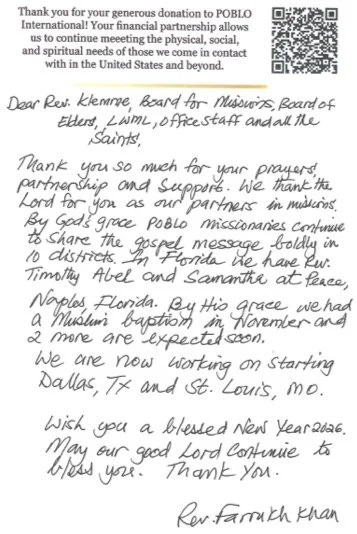 Thank you for your generous donation to POBLO
International! Your financial partnership allows
us to continue meeeting the physical, social,
and spiritual needs of those we come in contact
with in the United States and beyond.
Dear Rev. Klemroe, Board for Missions, Board of
Elders, LWML, office staff and all the
Saints,
Thank you so much for your prayers,
partnership and support. We thank the
Lord for you as our partners in missions.
By God's grace POBLO missionaries continue
to share the gospel message boldly in
10 districts. In Florida we have Rev.
Timothy Abel and Samantha at Peace,
Naples Florida. By His grace we had
a Muslim baptism in November and
2 more are expected soon.
We are now working on starting
Dallas, TX and St. Louis, MO.
Wish you a blessed New Year 2026.
May our good Lord continue to
bless you. Thank you.
Rev. Farrukh Khan